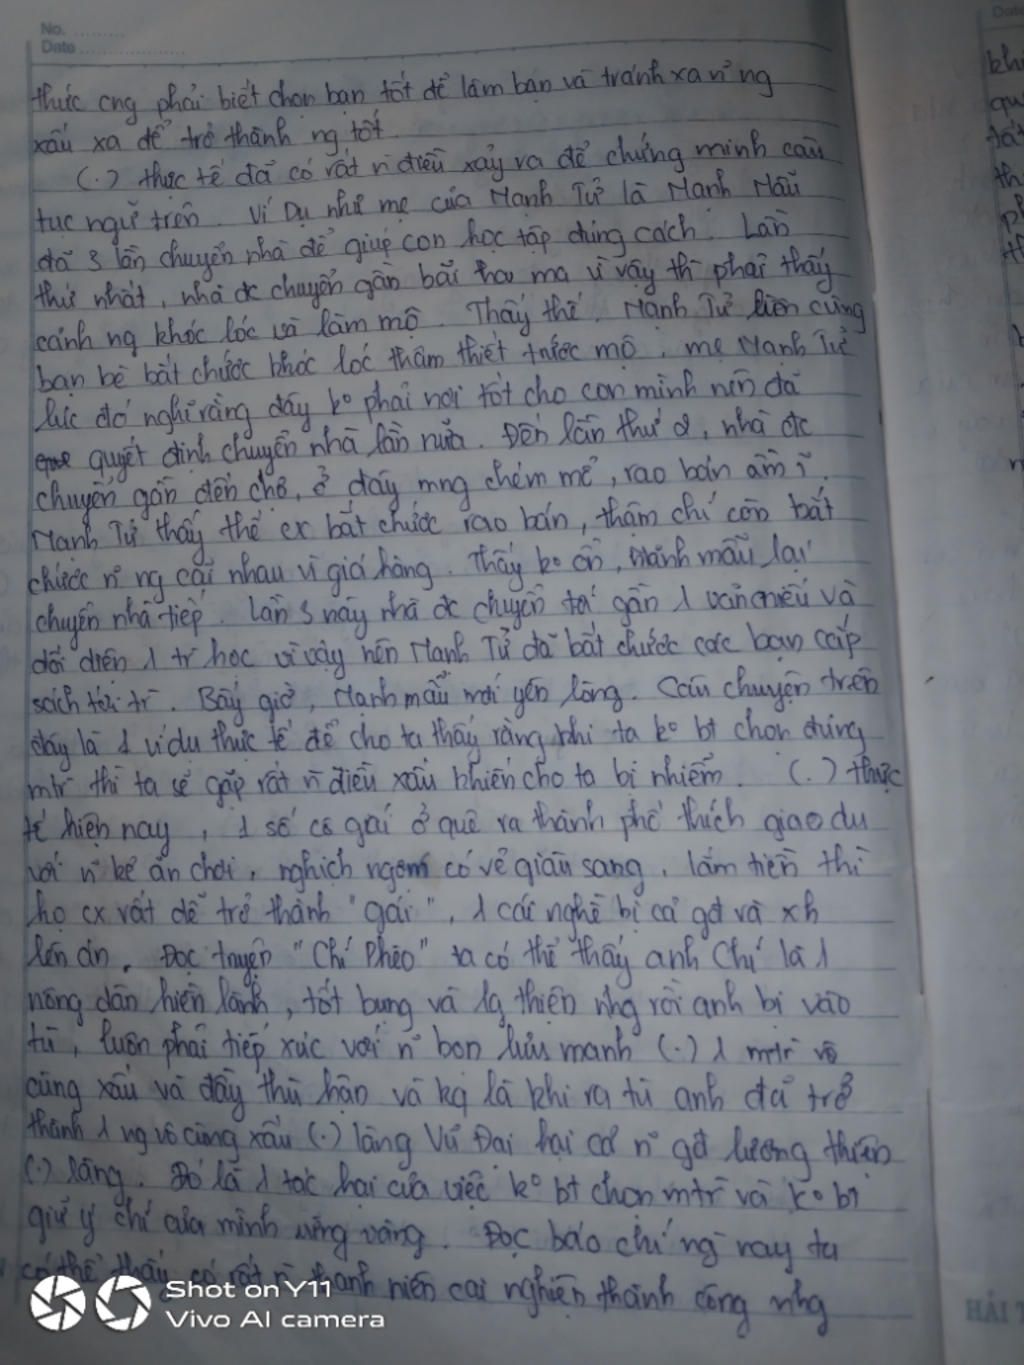 No. ..........
Date ....................
thức cng phải biết chọn bạn tốt để làm bạn và tránh xa n~ ng
xấu xa để trở thành ng tốt.
(.) thực tế đã có rất n~ điều xảy ra để chứng minh câu
tục ngữ trên. Ví Dụ như mẹ của Mạnh Tử là Mạnh Mẫu
đã 3 lần chuyển nhà để giúp con học tập đúng cách. Lần
thứ nhất, nhà đc chuyển gần bãi tha ma vì vậy thì phải thấy
cảnh ng khóc lóc và làm mộ. Thấy thế, Mạnh Tử liền cùng
bạn bè bắt chước khóc lóc thảm thiết trước mộ. mẹ Mạnh Tử
lúc đó nghĩ rằng đây k° phải nơi tốt cho con mình nên đã
quyết định chuyển nhà lần nữa. Đến lần thứ 2, nhà đc
chuyển gần đến chợ, ở đây mng chém mổ, rao bán ầm ĩ.
Mạnh Tử thấy thế cx bắt chước rao bán, thậm chí còn bắt
chước n~ ng cãi nhau vì giá hàng. Thấy k° ổn, Mạnh mẫu lại
chuyển nhà tiếp. Lần 3 này nhà đc chuyển tới gần 1 văn miếu và
đối diện 1 tr` học vì vậy nên Mạnh Tử đã bắt chước các bạn cắp
sách tới tr`. Bấy giờ, Mạnh mẫu mới yên lòng. Câu chuyện trên
đây là 1 ví dụ thực tế để cho ta thấy rằng khi ta k° bt chọn đúng
mtr` thì ta sẽ gặp rất n~ điều xấu khiến cho ta bị nhiễm. (.) thực
tế hiện nay, 1 số cô gái ở quê ra thành phố thích giao du
với n~ kẻ ăn chơi, nghịch ngợm có vẻ giàu sang, lắm tiền thì
họ cx rất dễ trở thành "gái", 1 cái nghề bị cả gđ và xh
lên án. Đọc truyện "Chí Phèo" ta có thể thấy anh Chí là 1
nông dân hiền lành, tốt bụng và lg thiện nhg rồi anh bị vào
tù, luôn phải tiếp xúc với n~ bọn lưu manh (.) 1 mtr` vô
cùng xấu và đầy thù hận và kq là khi ra tù anh đã trở
thành 1 ng vô cùng xấu (.) làng Vũ Đại hại cơ n~ gđ lương thiện
(.) làng. Đó là 1 tác hại của việc k° bt chọn mtr` và k° bt
giữ ý chí của mình vững vàng. Đọc báo chí ng` nay ta
có thể thấy có rất n~ thanh niên cai nghiện thành công nhg
Shot on Y11
Vivo AI camera
Date
HẢI